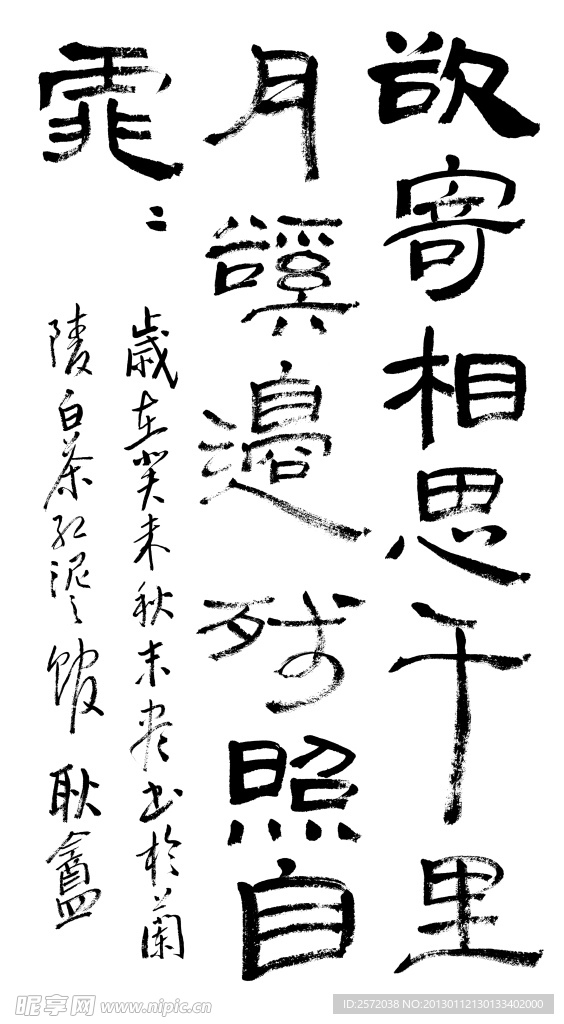 欲寄相思千里
月谿邊残照自
霏〻
歲在癸未秋末卷书於蘭
陵白茶紅泥館 耿龕
昵享网 www.nipic.cn
ID:2572038 NO:20130112130133402000